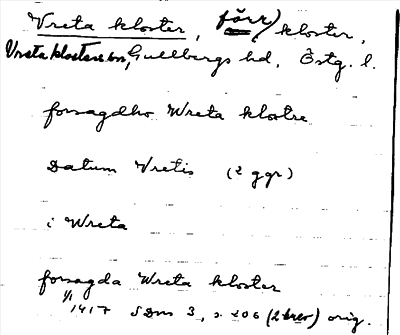 Vreta kloster, förr) kloster,
Vreta klosters sn, Gullbergs hd, Östg. l.
forsagdho Wreta klostre
Datum Vretis (2 ggr)
i Wreta
forsagda Wreta kloster
1/1 1417 SDns 3, s. 206 (2 brev) orig.